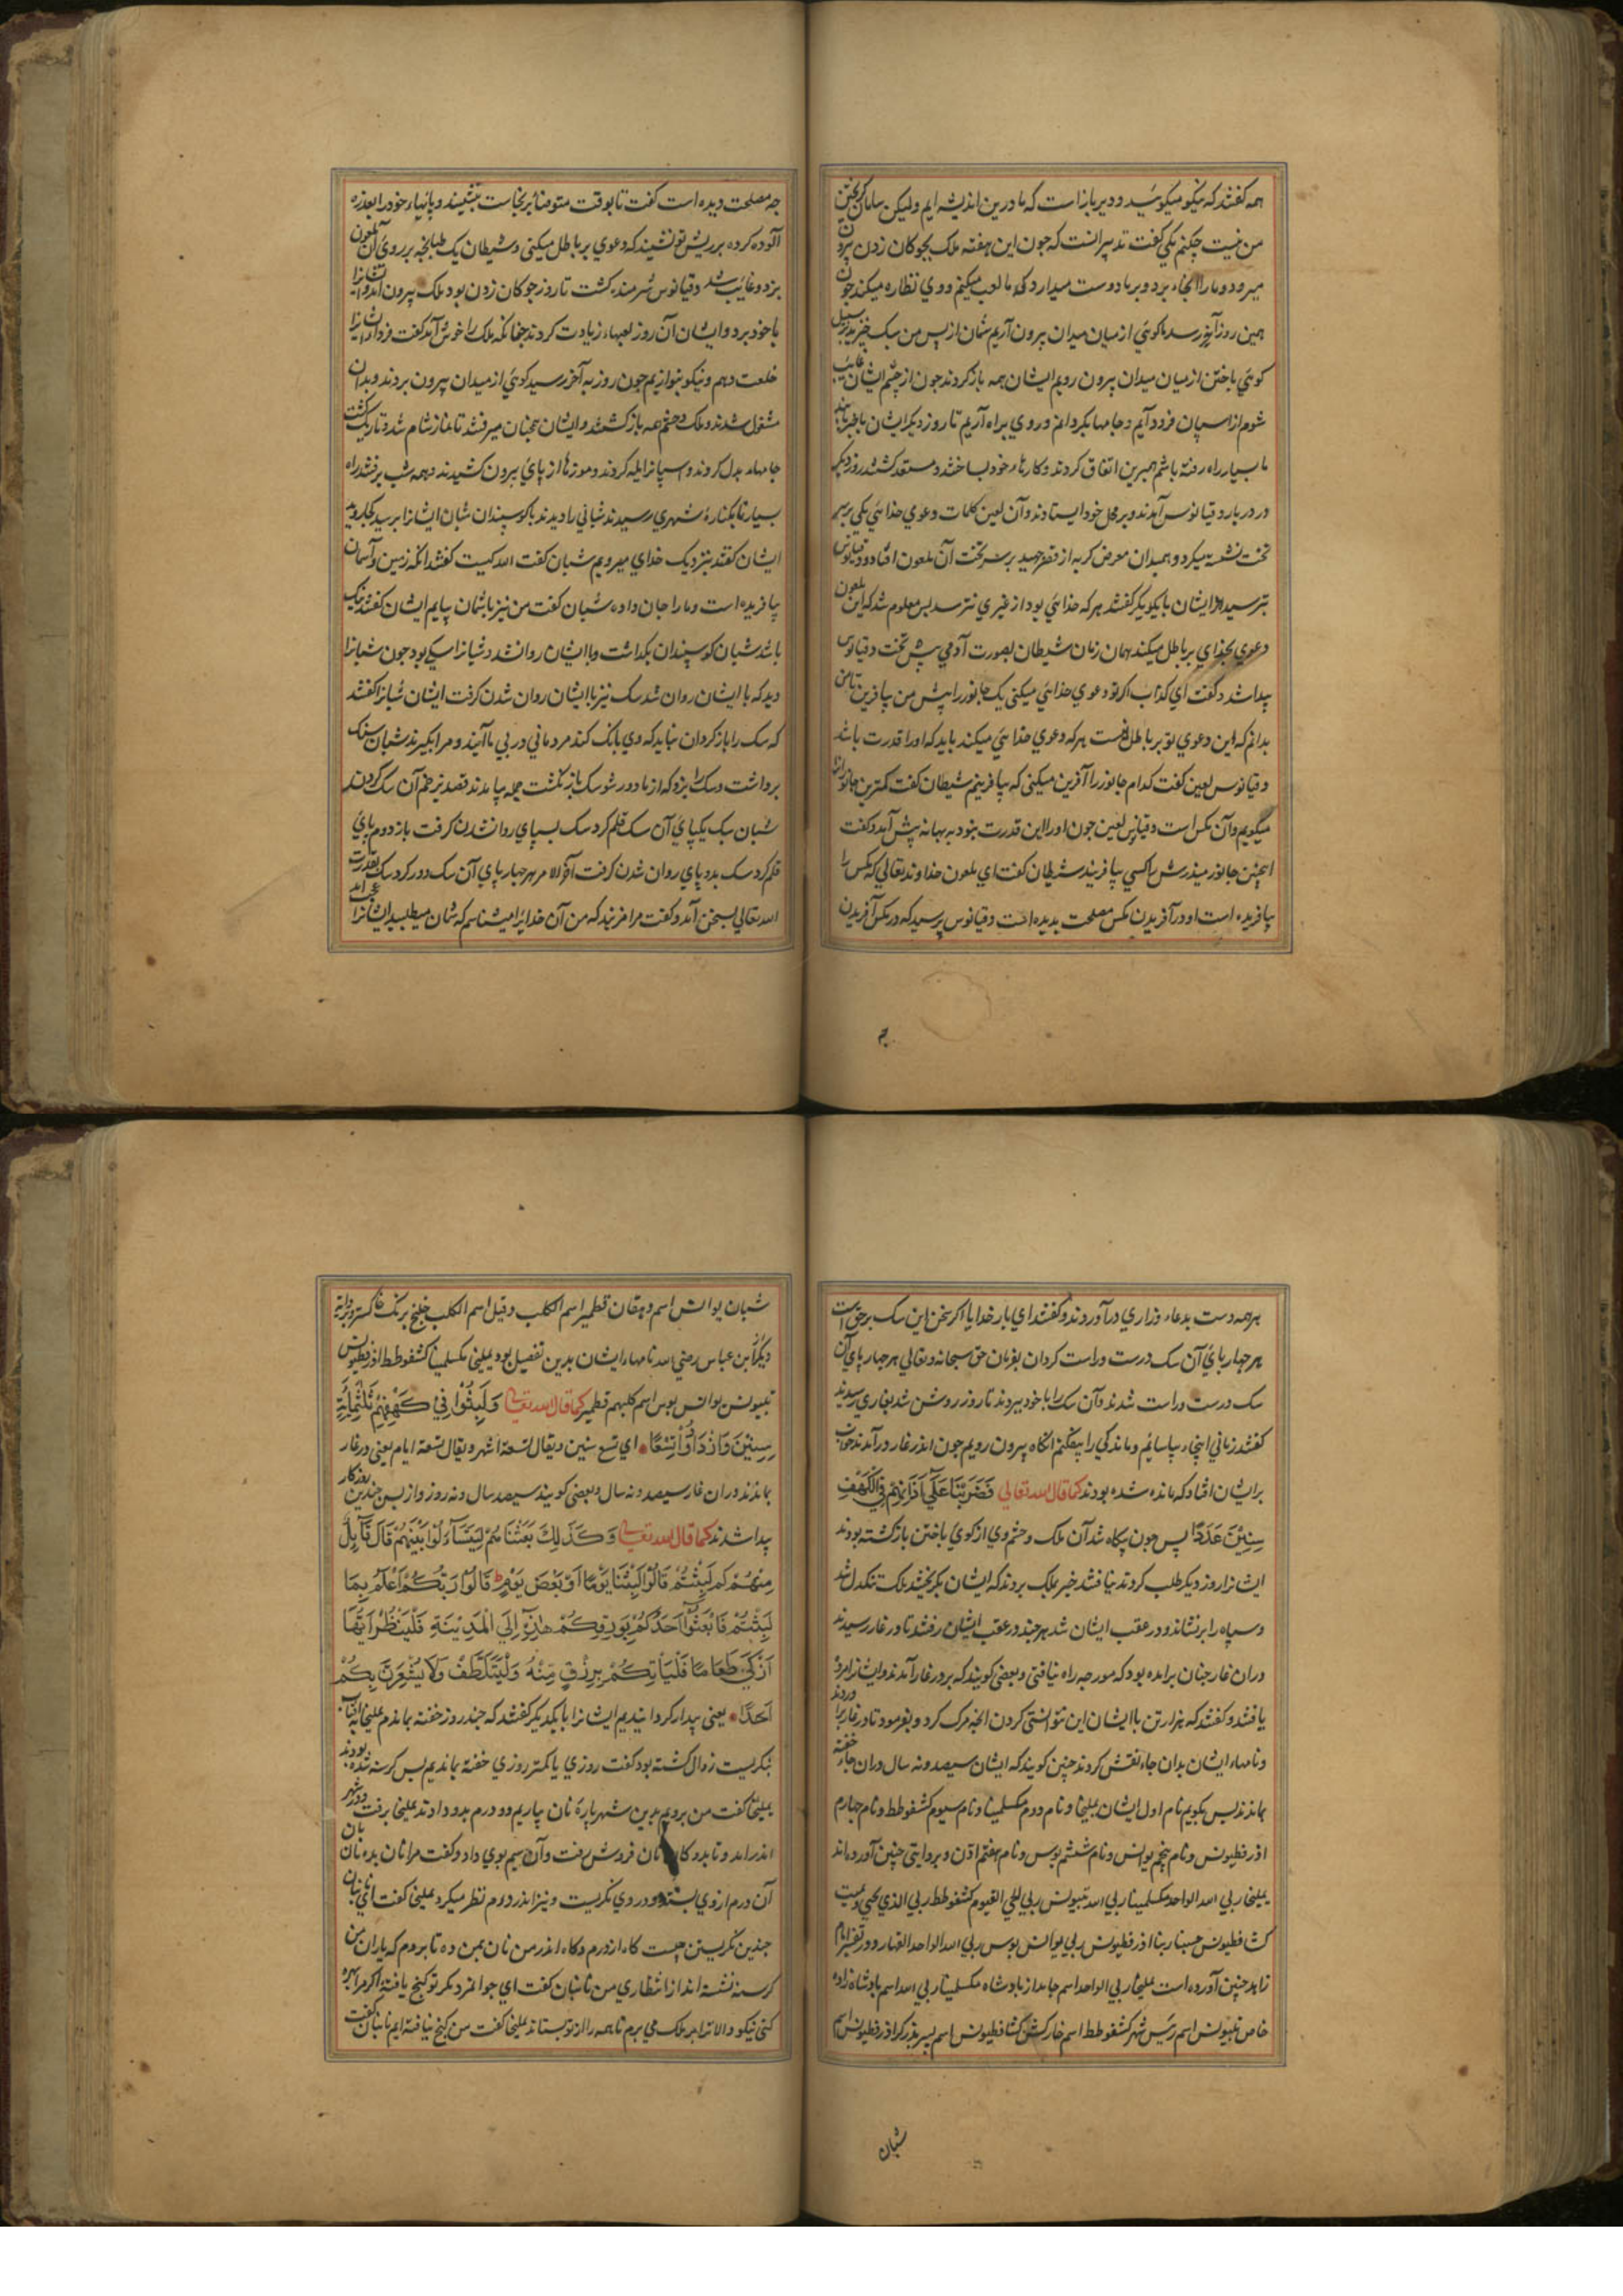 همه گفتند که نیکو میکوئید و دیر باز است که ما درین اندیشه ایم ولیکن سامان گریختن
من نیست چکنم یکی گفت تدبیر انست که چون این هفته ملک بچوکان زدن بیرون
میرود و ما را انجاء برد و بر ما دوست میدارد که ما لعب میکنم و وی نظاره میکند چون
همین روز بآخر رسد ما کوئی از میان میدان بیرون آریم شمان از پس من سبک خیزید بر سبیل
کوئی باختن از میان میدان بیرون رویم ایشان همه باز کردند چون از چشم ایشان غایب
شوم از اسپان فرود آیم و جامها بکردانم و روی براه آریم تا روز دیکر ایشان با خبر باشند
ما بسیار راه رفته باشم همبرین اتفاق کردند و کارهاء خود بساختند و مستعد کشتند روز دیکر
در دربار دقیانوس آمدند و بر محل خود ایستادند و آن لعین کلمات دعوی خدائی یکی بر سر
تخت نشسته میکرد و همبدان معرض کربه از قصر جهید بر سر تخت آن ملعون افتاد و دقیانوس
بترسید ایشان با یکدیکر گفتند هر که خدائی بود از غیری نترسد پس معلوم شد که این ملعون
دعوی بخدای بر باطل میکند همان زمان شیطان بصورت آدمی پیش تخت دقیانوس
پیدا شد و گفت ای کذاب اکر تو دعوی خدائی میکنی یک جانور را پیش من بیافرین تا من
بدانم که این دعوی تو بر باطل است هر که دعوی خدائی میکند باید که او را قدرت باشد
دقیانوس لعین کفت کدام جانور را آفرین میکنی که بیافرینم شیطان کفت کمترین جانور انرا
میگویم و آن مکس است دقیانوس لعین چون او را این قدرت نبود به بهانه پیش آمد و کفت
اینچنین جانور میذرش را کسی بیافریند شیطان کفت ای ملعون خداوند تعالی که مکس را
بیافریده است او در آفریدن مکس مصلحت بدیده است دقیانوس پرسید که در مکس آفریدن
چه
چه مصلحت دیده است کفت تا بوقت متوضا بر نجاست بنشیند و پائهاء خود را بعذره
آلوده کرده بر ریش تو نشیند که دعوی بر باطل میکنی و شیطان یک طبانچه بر روی آن ملعون
بزد و غایب شد دقیانوس شرمنده کشت تا روز چوکان زدن بود ملک بیرون آمد و ایشانرا
با خود برد و ایشان آن روز لعبهاء زیادت کردند چنانکه ملک را خوش آمد کفت فردا ایشانرا
خلعت دهم و نیکو بنوازیم چون روز به آخر رسید کوئی از میدان بیرون بردند و بدان
مشغول شدند و ملک و حشم همه باز کشتند و ایشان همچنان میرفتند تا نماز شام شد و تاریک کشت
جامهاء بدل کردند و اسپانرا یله کردند و موزها از پای بیرون کشیدند و همه شب برفتند راه
بسیار تا بکناره شهری رسیدند شبانی را دیدند با کوسپندان شبان ایشانرا پرسید کجا روید
ایشان کفتند بنزدیک خدای میرویم شبان کفت الله کیست کفتند انکه زمین و آسمان
بیافریده است و ما را جان داده شبان کفت من نیز با شمان بیایم ایشان کفتند نیک
باشد شبان کوسپندان بکذاشت و با ایشان روان شد و شبانرا سکی بود چون شبانرا
دید که با ایشان روان شد سک نیز با ایشان روان شدن کرفت ایشان شبانرا کفتند
که سک را باز کردان نباید که وی بانک کند مردمانی در پی ما آیند و مرا بکیرند شبان سنک
برداشت و سک را بزد که از ما دور شو سک باز نکشت جمله بیامدند قصد بزخم آن سک کردند
شبان سبک یکپای آن سک قلم کرد سک بسپای روان شدن کرفت باز دوم پای
قلم کرد سک بدو پای روان شدن کرفت آخر الامر هر چهار پای آن سک دور کرد سک بقدرت
الله تعالی بسخن آمد و کفت مرا مزنید که من آن خدایرا میشناسم که شمان میطلبید ایشانرا عجب آمد
بر همه دست بدعاء وزاری در آوردند و کفتند ای بار خدایا اکر سخن این سک بر حق است
هر چهار پای آن سک درست و راست کردان بفرمان حق سبحانه و تعالی هر چهار پای آن
سک درست و راست شدند و آن سک را با خود ببردند تا روز روشن شد بغاری رسیدند
کفتند زمانی اینجاء بیاسائیم و ماندکی را بیفکنم انکاه بیرون رویم چون اندر غار در آمدند خواب
بر ایشان افتاد که مانده شده بودند کما قال الله تعالی فَضَرَبْنَا عَلَىٰ آذَانِهِمْ فِي الْكَهْفِ
سِنِينَ عَدَدًا پس چون بیکاه شد آن ملک و حشم وی از کوی باختن باز کشته بودند
ایشانرا روز دیکر طلب کردند نیافتند خبر بملک بردند که ایشان بکریختند ملک تنکدل شد
و سپاه را برنشاند و در عقب ایشان شد هر چند در عقب ایشان رفتند تا در غار رسیدند
در ان غار چنان برامده بود که مورچه راه نیافتی و بعضی کویند که بر در غار آمدند و ایشانرا مرده
یافتند و کفتند که هزار تن با ایشان این نتوانستی کردن انچه مرک کرد و بفرمود تا در غار برآوردند
و نامهاء ایشان بدان جاء نقش کردند چنین کویند که ایشان سیصد و نه سال دران جاء خفته
بماندند پس بکویم نام اول ایشان یملیخا و نام دوم مکسلمینا و نام سیوم کشفوطط و نام چهارم
اذرفطیونس و نام پنجم یوانس و نام ششم بوس و نام هفتم اذن و بروایتی چنین آورده اند
یملیخا ربی الله الواحد مکسلمینا ربی الله تبیونس ربی الحی القیوم کشفوطط ربی الذی یحیی و یمیت
کشافطیونس حسبنا ربنا اذرفطیونس ربی یوانس بوس ربی الله الواحد القهار و در تفسیر امام
زاهد چنین آورده است یملیخا ربی الواحد اسم جامدار پادشاه مکسلمینا ربی الله اسم پادشاه زاده
خاص تبیونس اسم رئیس شهر کشفوطط اسم خارکش کشافطیونس اسم پسر بذرکر اذرفطیونس اسم
شبان
شبان یوانس اسم دهقان قطمیر اسم الکلب و قیل اسم الکلب خلیخ برنک خاکستر و بروایة
دیکر از ابن عباس رضی الله نامهاء ایشان بدین تفصیل بود یملیخا مکسلمینا کشفوطط اذرفطیونس
تبیونس یوانس بوس اسم کلبهم قطمیر کما قال الله تعالی وَلَبِثُوا فِي كَهْفِهِمْ ثَلَٰثَمِائَةٍ
سِنِينَ وَازْدَادُوا تِسْعًا ای تسع سنین و یقال تسعة اشهر و یقال تسعة ایام یعنی در غار
بماندند دران غار سیصد و نه سال و بعضی کویند سیصد سال و نه روز و از پس چندین روزکار
پیدا شدند کما قال الله تعالی وَكَذَٰلِكَ بَعَثْنَاهُمْ لِيَتَسَاءَلُوا بَيْنَهُمْ قَالَ قَائِلٌ
مِنْهُمْ كَمْ لَبِثْتُمْ قَالُوا لَبِثْنَا يَوْمًا أَوْ بَعْضَ يَوْمٍ قَالُوا رَبُّكُمْ أَعْلَمُ بِمَا
لَبِثْتُمْ فَابْعَثُوا أَحَدَكُمْ بِوَرِقِكُمْ هَٰذِهِ إِلَى الْمَدِينَةِ فَلْيَنْظُرْ أَيُّهَا
أَزْكَىٰ طَعَامًا فَلْيَأْتِكُمْ بِرِزْقٍ مِنْهُ وَلْيَتَلَطَّفْ وَلَا يُشْعِرَنَّ بِكُمْ
أَحَدًا یعنی بیدار کردانیدیم ایشانرا با یکدیکر کفتند که چند روز خفته بماندم یملیخا به آفتاب
بنکریست زوال کشته بود کفت روزی یا کمتر روزی خفته بماندیم پس کرسنه شده بودند
یملیخا کفت من بروم بدین شهر پاره نان بیاریم دو درم بدو دادند یملیخا برفت و در شهر
اندر امد و تا بدوکان نان فروش رفت و آن سیم بوی داد و کفت مرا نان بده نان بان
آن درم از وی بستد و در وی نکریست و نیز اندر درم نظر میکرد یملیخا کفت ای نانبان
چندین نکریستن چیست کاء از درم و کاء اندر من نان بمن ده تا بروم که یاران من
کرسنه نشسته اند از انتظاری من نانبان کفت ای جوانمرد مکر تو کنج یافتهٔ اکر مرا بهره
کنی نیکو و الا ترا بر ملک می برم تا همه را از تو بستاند یملیخا کفت من کنج نیافته ایم نانبان کفت